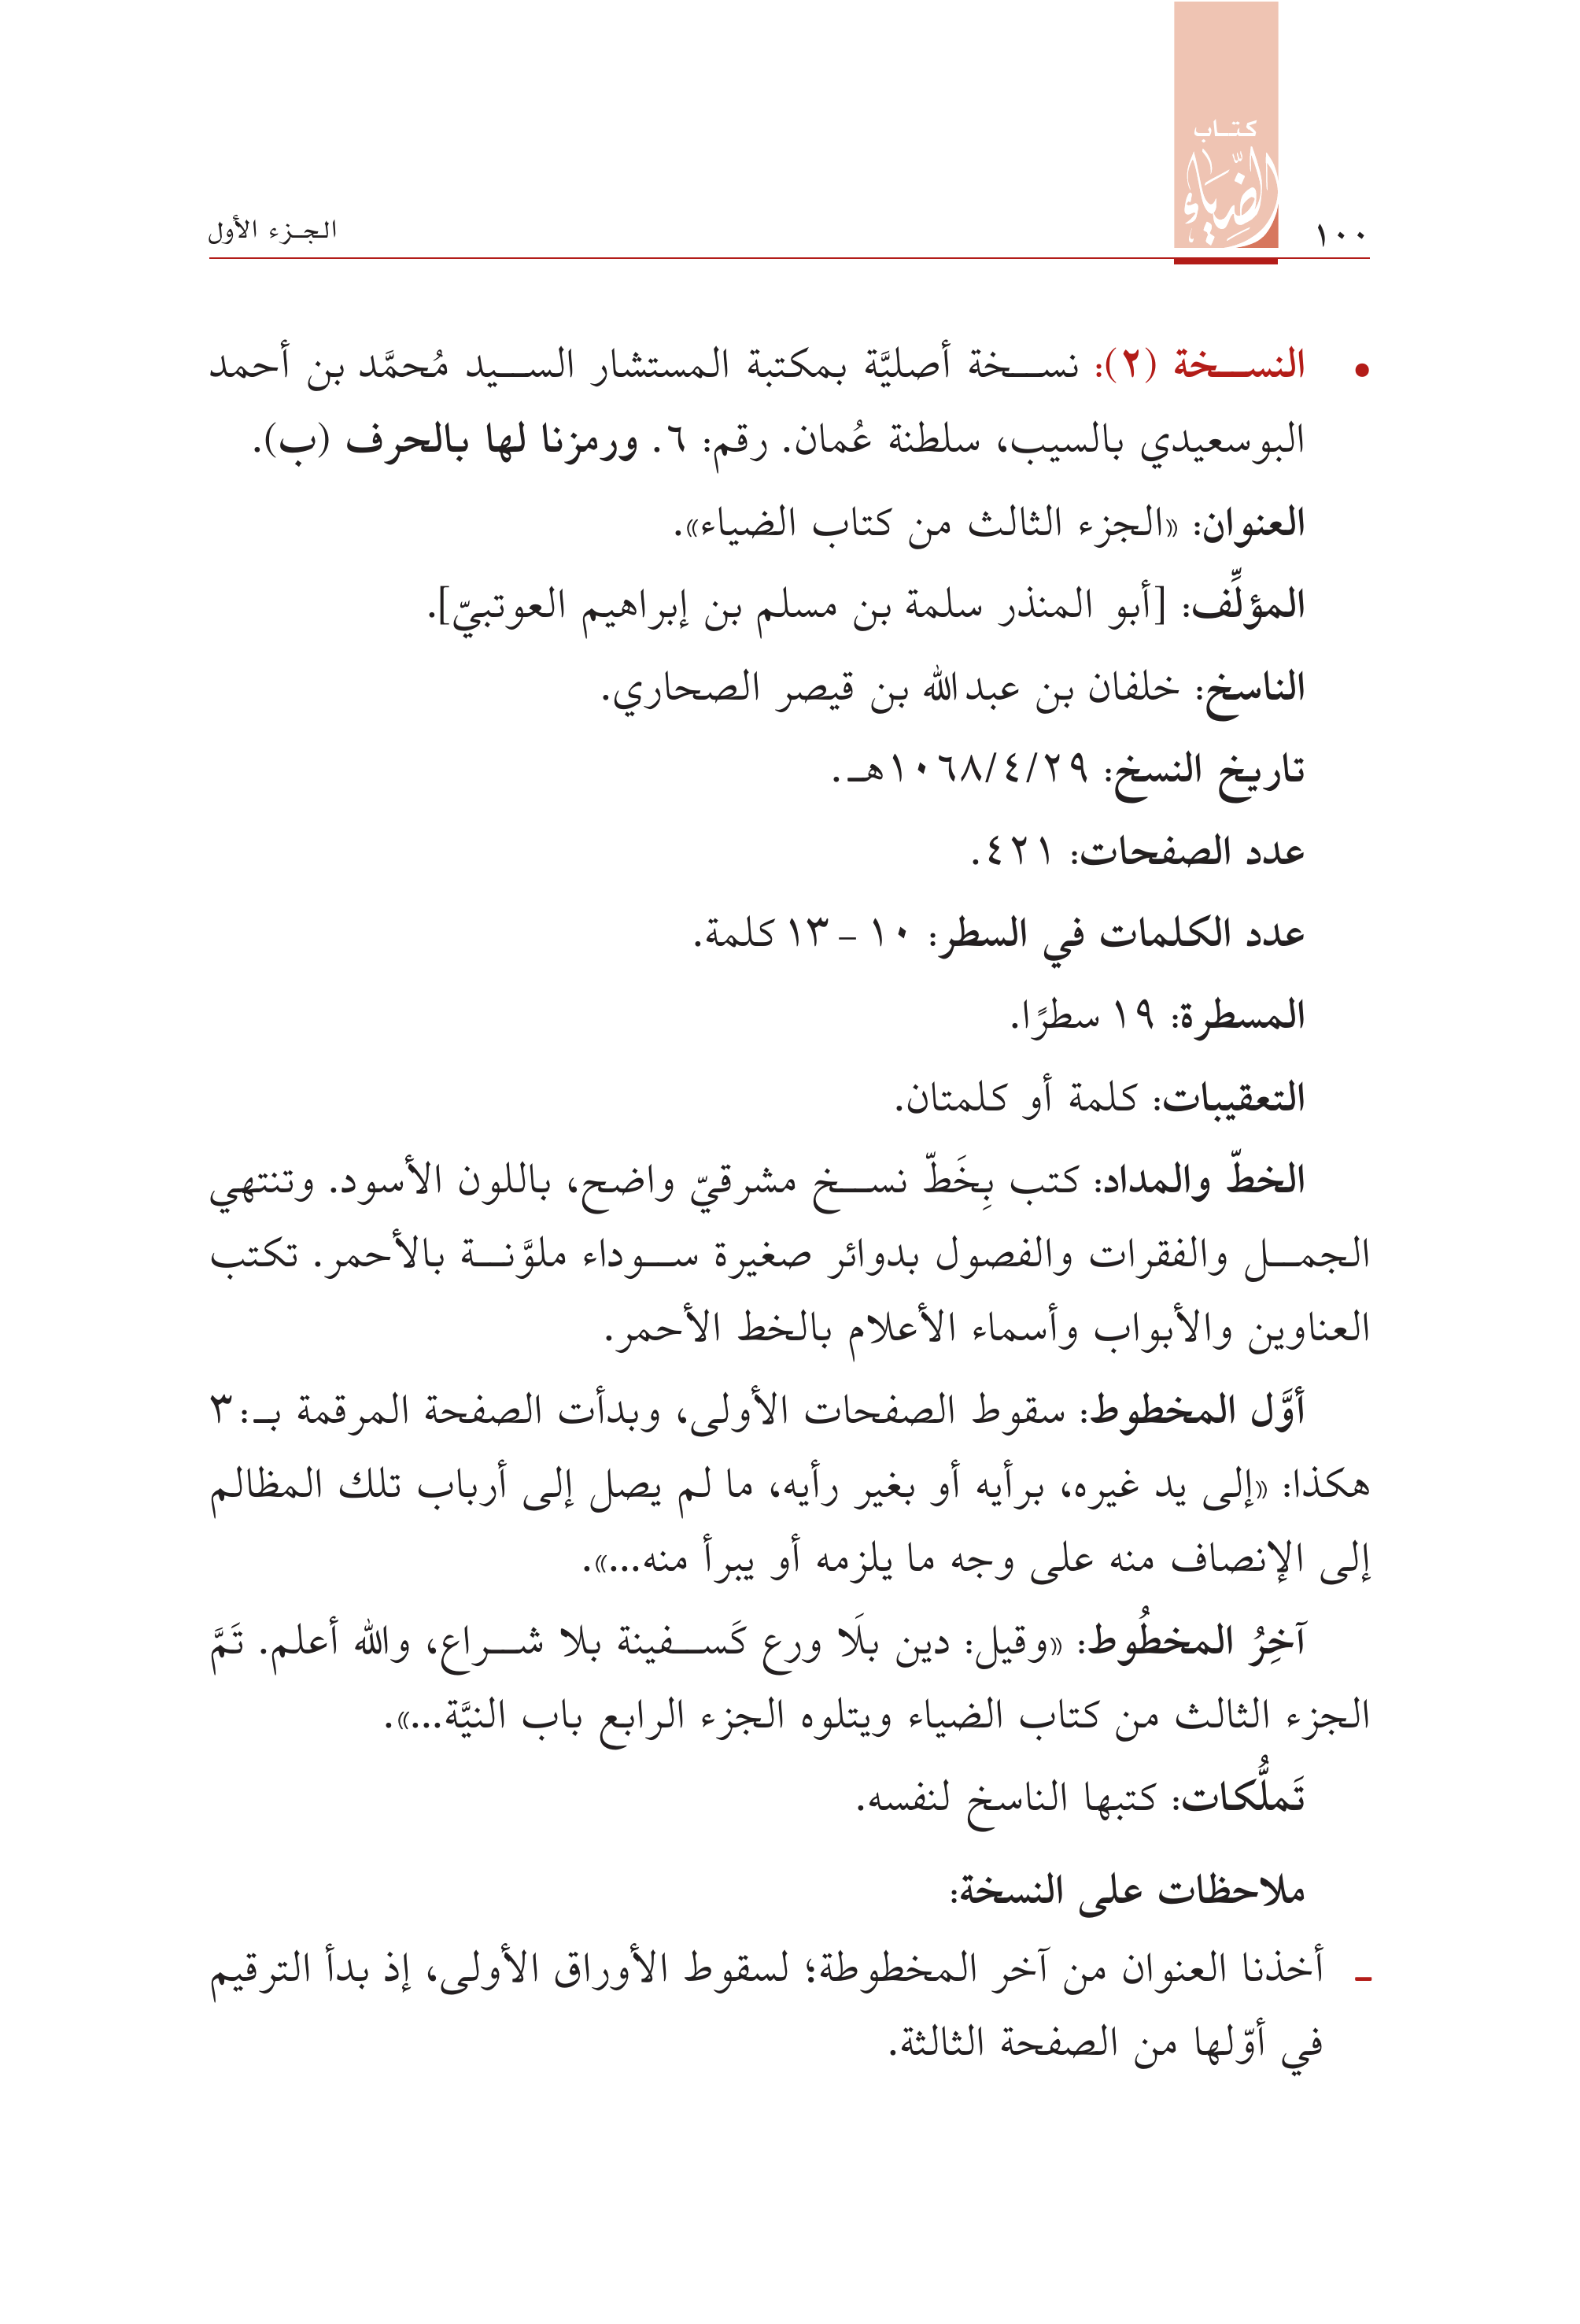 ١٠٠
كتـاب
الضِّيَاء
الجـزء الأول
• النســـخة (٢): نســـخة أصليَّة بمكتبة المستشار الســـيد مُحمَّد بن أحمد
البوسعيدي بالسيب، سلطنة عُمان. رقم: ٦. ورمزنا لها بالحرف (ب).
العنوان: «الجزء الثالث من كتاب الضياء».
المؤلِّف: [أبو المنذر سلمة بن مسلم بن إبراهيم العوتبيّ].
الناسخ: خلفان بن عبدالله بن قيصر الصحاري.
تاريخ النسخ: ١٠٦٨/٤/٢٩هـ.
عدد الصفحات: ٤٢١.
عدد الكلمات في السطر: ١٠ - ١٣ كلمة.
المسطرة: ١٩ سطرًا.
التعقيبات: كلمة أو كلمتان.
الخطّ والمداد: كتب بِخَطّ نســـخ مشرقيّ واضح، باللون الأسود. وتنتهي
الجمـــل والفقرات والفصول بدوائر صغيرة ســـوداء ملوَّنـــة بالأحمر. تكتب
العناوين والأبواب وأسماء الأعلام بالخط الأحمر.
أوَّل المخطوط: سقوط الصفحات الأولى، وبدأت الصفحة المرقمة بـ: ٣
هكذا: «إلى يد غيره، برأيه أو بغير رأيه، ما لم يصل إلى أرباب تلك المظالم
إلى الإنصاف منه على وجه ما يلزمه أو يبرأ منه...».
آخِرُ المخطُوط: «وقيل: دين بلَا ورع كَســـفينة بلا شـــراع، والله أعلم. تَمَّ
الجزء الثالث من كتاب الضياء ويتلوه الجزء الرابع باب النيَّة...».
تَملُّكات: كتبها الناسخ لنفسه.
ملاحظات على النسخة:
ـ أخذنا العنوان من آخر المخطوطة؛ لسقوط الأوراق الأولى، إذ بدأ الترقيم
في أوّلها من الصفحة الثالثة.